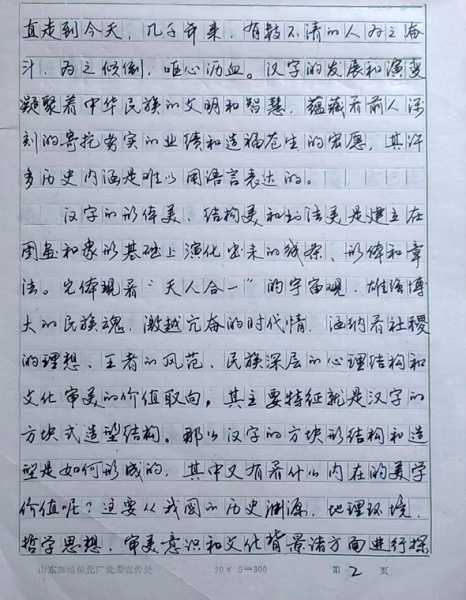 直走到今天，几千年来，有数不清的人为之奋
斗，为之倾倒，呕心沥血。汉字的发展和演变
凝聚着中华民族的文明和智慧，蕴藏着前人深
刻的寄托 实的业绩和造福苍生的宏愿，其许
多历史内涵是难以用语言表达的。
汉字的形体美、结构美和书法美是建立在
图画和象形基础上演化出来的线条、形体和章
法。它体现着“天人合一”的宇宙观，雄强博
大的民族魂，激越亢奋的时代情，涵纳着社稷
的理想、王者的风范、民族深层的心理结构和
文化审美的价值取向，其主要特征就是汉字的
方块式造型结构。那么汉字的方块形结构和造
型是如何形成的，其中又有着什么内在的美学
价值呢？这要从我国的历史渊源，地理环境，
哲学思想，审美意识和文化背景诸方面进行探
山东 厂党委宣传处
20×15=300
第 2 页